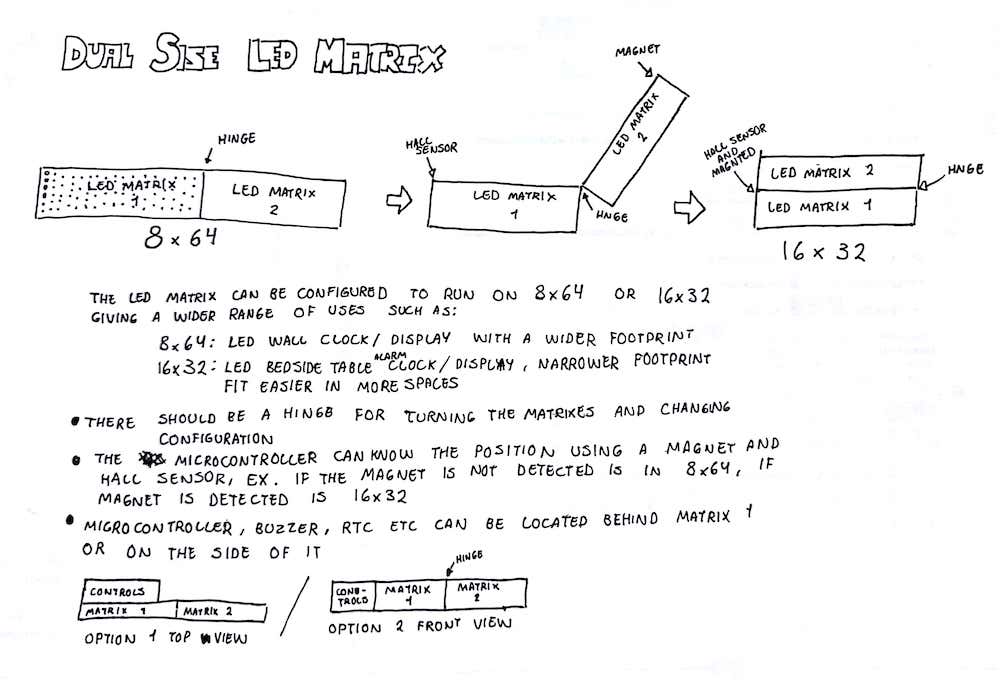 DUAL SISE LED MATRIX
MAGNET
HINGE
HALL
SENSOR
LED MATRIX
2
HALL SENSOR
AND
MAGNTED
LED MATRIX
1
LED MATRIX
2
LED MATRIX
1
HNGE
LED MATRIX 2
LED MATRIX 1
HNGE
8x64
16x32
THE LED MATRIX CAN BE CONFIGURED TO RUN ON 8x64 OR 16x32
GIVING A WIDER RANGE OF USES SUCH AS:
8x64: LED WALL CLOCK/DISPLAY WITH A WIDER FOOTPRINT
16x32: LED BEDSIDE TABLE ALARM CLOCK/DISPLAY, NARROWER FOOTPRINT
FIT EASIER IN MORE SPACES
• THERE SHOULD BE A HINGE FOR TURNING THE MATRIXES AND CHANGING
CONFIGURATION
• THE MICROCONTROLLER CAN KNOW THE POSITION USING A MAGNET AND
HALL SENSOR, EX. IF THE MAGNET IS NOT DETECTED IS IN 8x64, IF
MAGNET IS DETECTED IS 16x32
• MICROCONTROLLER, BUZZER, RTC ETC CAN BE LOCATED BEHIND MATRIX 1
OR ON THE SIDE OF IT
HINGE
CONTROLS
MATRIX 1
MATRIX 2
OPTION 1 TOP VIEW
MATRIX
1
MATRIX
2
OPTION 2 FRONT VIEW